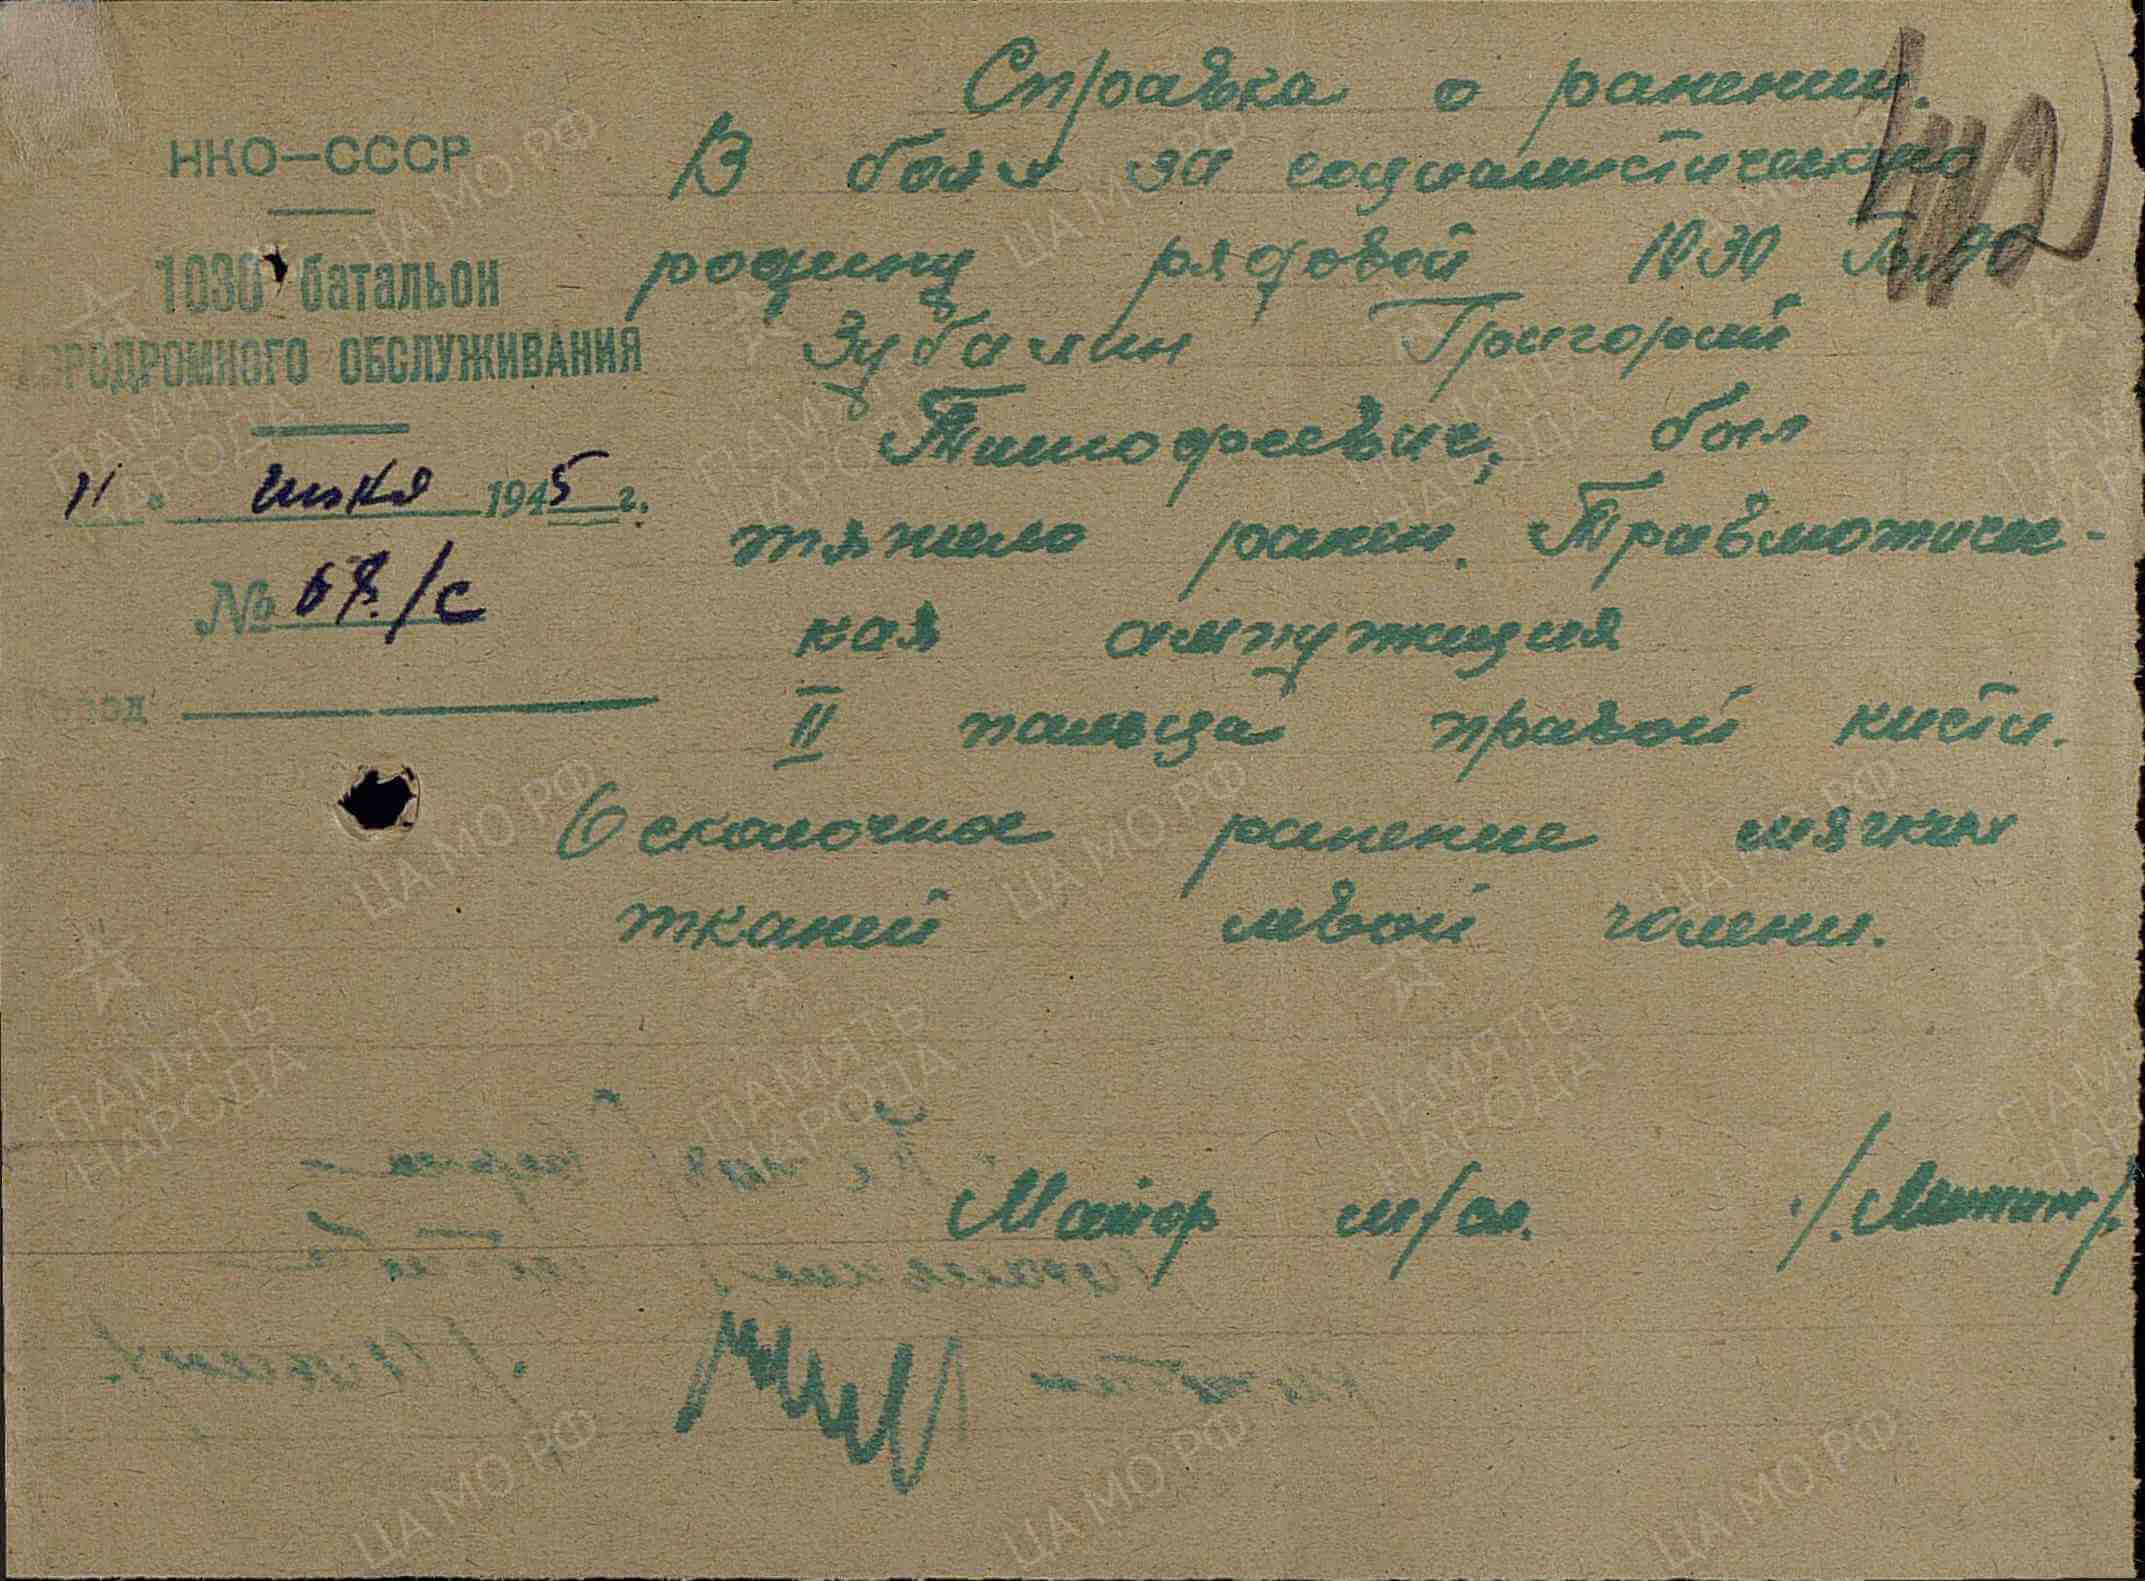 Справка о ранении.
НКО–СССР
1030 батальон
АЭРОДРОМНОГО ОБСЛУЖИВАНИЯ
11 июня 1945 г.
№ 68/с
Город
В боях за социалистическую
родину рядовой 1030 БАО
Зубахин Григорий
Тимофеевич, был
тяжело ранен. Травмотичес-
кая ампутация
II пальца правой кисти.
Осколочное ранение мягких
тканей левой голени.
Майор м/сл.
ПАМЯТЬ НАРОДА
ЦА МО РФ